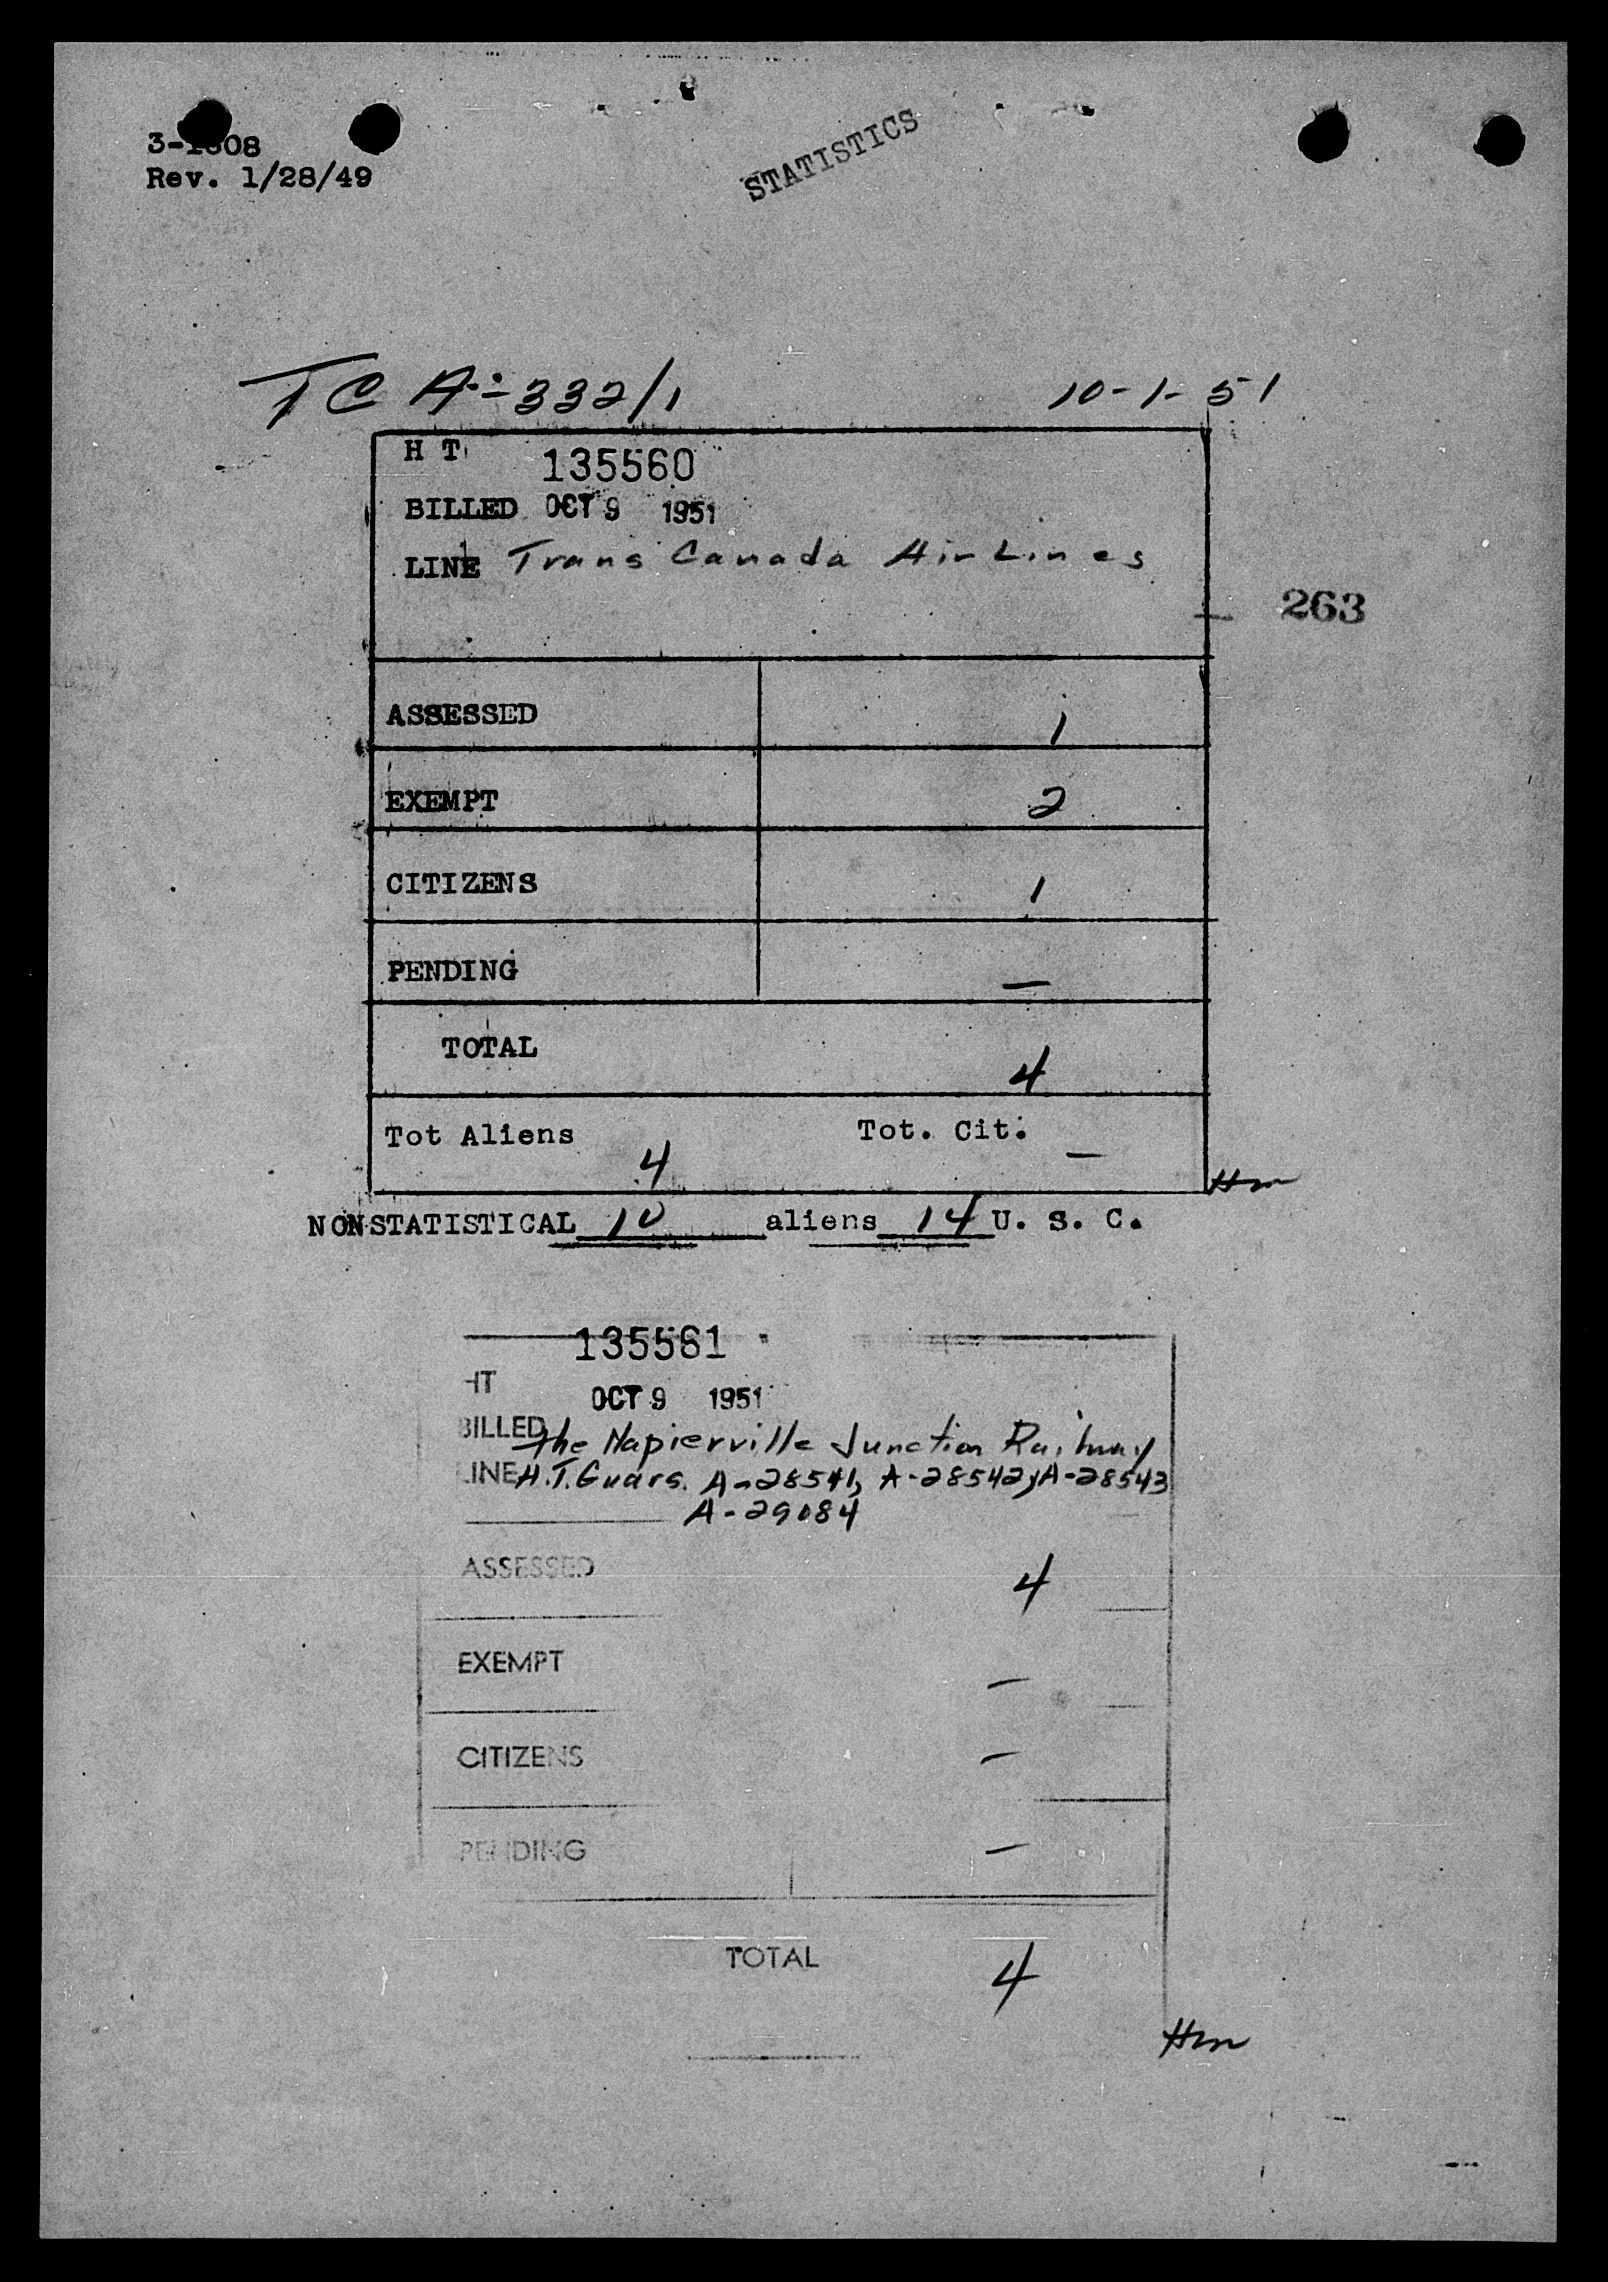 STATISTICS
3-1608
Rev. 1/28/49
TCA-332/1 10-1-51
H T 135560
BILLED OCT 9 1951
LINE Trans Canada Air Lines
263
ASSESSED 1
EXEMPT 2
CITIZENS 1
PENDING —
TOTAL 4
Tot Aliens 4 Tot. Cit. —
Hm
NONSTATISTICAL 10 aliens 14 U. S. C.
135561
HT
OCT 9 1951
BILLED The Napierville Junction Railway
LINE H.T. Guars. A-28541, A-28542, A-28543
A-29084
ASSESSED 4
EXEMPT —
CITIZENS —
PENDING —
TOTAL 4
Hm